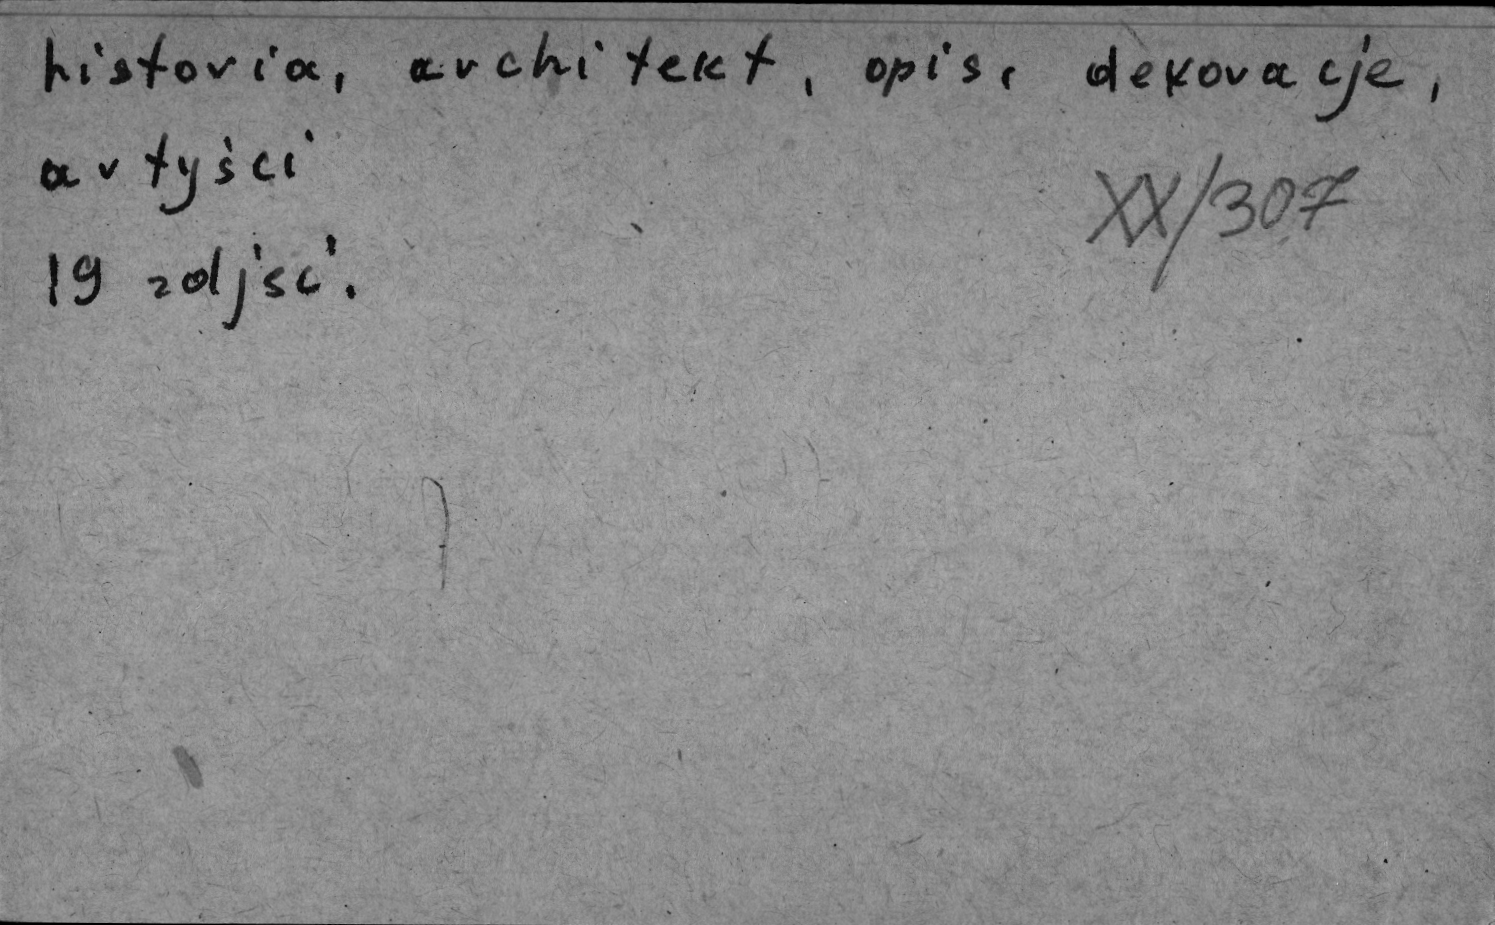 historia, architekt, opis, dekoracje,
artyści
XX/307
19 zdjęć.